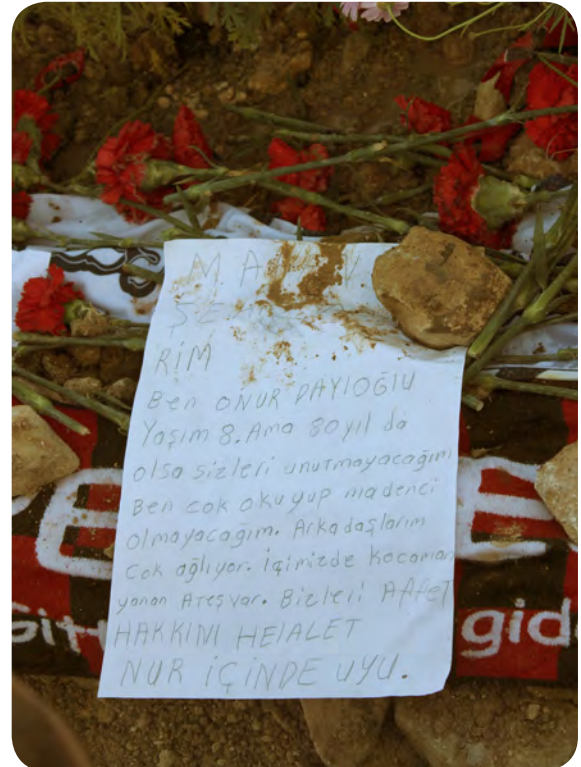 RİM
Ben ONUR DAYIOĞLU
Yaşım 8. Ama 80 yıl da
olsa sizleri unutmayacağım
Ben cok okuyup madenci
olmayacağım. Arkadaşlarım
cok ağlıyor. içimizde kocaman
yanan Ateş var. Bizleri Affet
HAKKINI HElALET
NUR İÇİNDE UYU.
gid